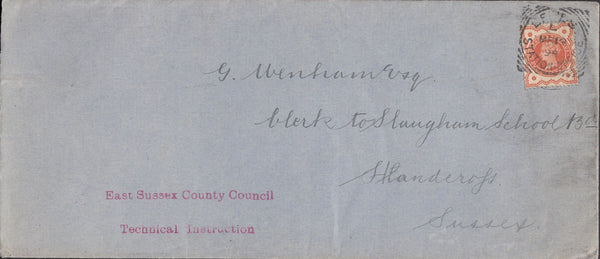 G. Wenham Esq.
Clerk to Slaugham School Bd
Handcross
Sussex.
East Sussex County Council
Technical Instruction